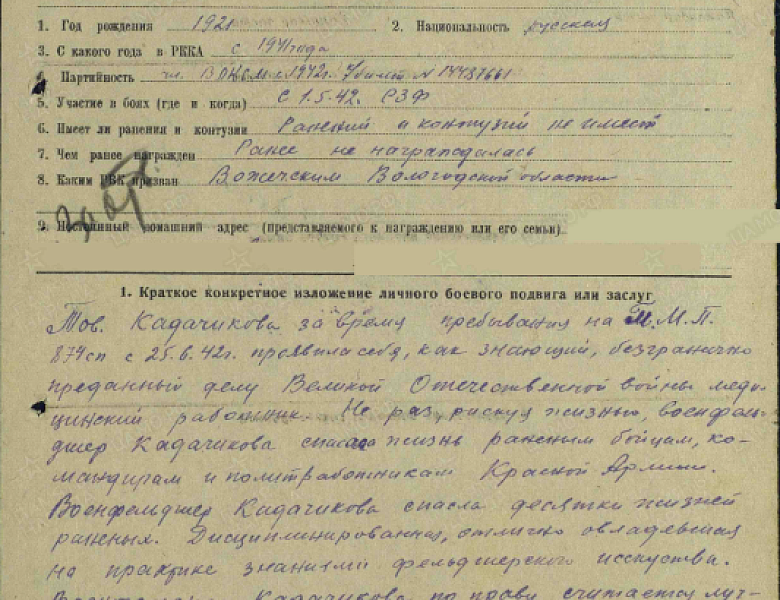 1. Год рождения 1921 2. Национальность русская
3. С какого года в РККА с 1941 года
4. Партийность чл. ВЛКСМ с 1942г. билет N 14437661
5. Участие в боях (где и когда) С 1.5.42. СЗФ
6. Имеет ли ранения и контузии Ранений и контузий не имеет
7. Чем ранее награжден Ранее не награждалась
8. Каким РВК призван Вожегским Вологодской области
9. Постоянный домашний адрес (представляемого к награждению или его семьи)
1. Краткое конкретное изложение личного боевого подвига или заслуг
Тов. Кадачикова за время пребывания на П.М.П.
874сп с 25.6.42г. проявила себя, как знающий, безгранично
преданный делу Великой Отечественной войны меди-
цинский работник. Не раз, рискуя жизнью, военфель-
дшер Кадачикова спасала жизнь раненым бойцам, ко-
мандирам и политработникам Красной Армии.
Военфельдшер Кадачикова спасла десятки жизней
раненых. Дисциплинированная, отлично овладевшая
на практике знаниями фельдшерского исскуства.
Кадачикова по праву считается луч-